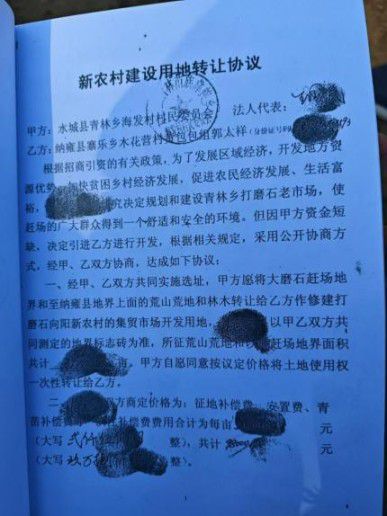 新农村建设用地转让协议
甲方：水城县青林乡海发村村民委员会 法人代表：
乙方：纳雍县寨乐乡木花营村 包包组郭太祥（身份证号码
根据招商引资的有关政策，为了发展区域经济，开发地方资
源优势，加快贫困乡村经济发展，促进农民经济发展、生活富
裕， 究决定规划和建设青林乡打磨石老市场，使
赶场的广大群众得到一个舒适和安全的环境。但因甲方资金短
缺、决定引进乙方进行开发，根据相关规定，采用公开协商方
式，经甲、乙双方协商，达成如下协议：
一、经甲、乙双方共同实施选址，甲方愿将大磨石赶场地
界和至纳雍县地界上面的荒山荒地和林木转让给乙方作修建打
磨石向阳新农村的集贸市场开发用地， 以甲乙双方共
同测定的地界标志砖为准，所征荒山荒地和 赶场地界面积
共计 亩，甲方自愿同意按议定价格将土地使用权
一次性转让给乙方。
二、 方商定价格为：征地补偿费、安置费、青
苗补偿费 补偿费费用合计为每亩 元
（大写 整），共计 元
（大写 玖万 整）。